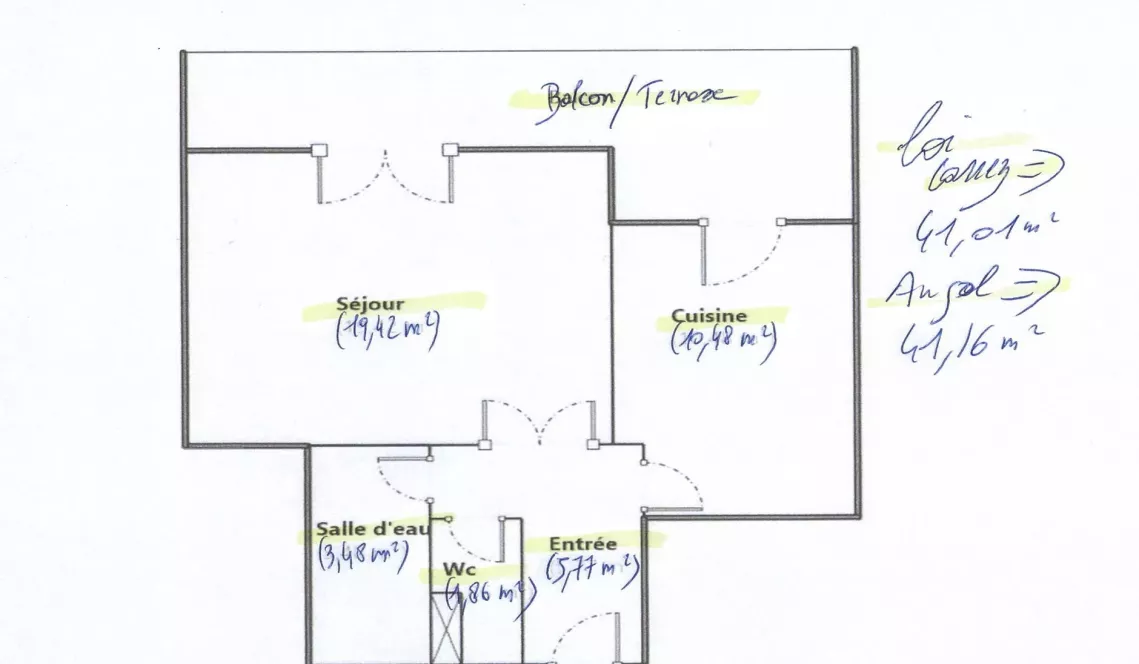 Balcon/Terrasse
loi
Carrez =>
41,01 m²
Au sol =>
41,16 m²
Séjour
(19,42 m²)
Cuisine
(10,48 m²)
Salle d'eau
(3,48 m²)
Entrée
(5,77 m²)
Wc
(1,86 m²)